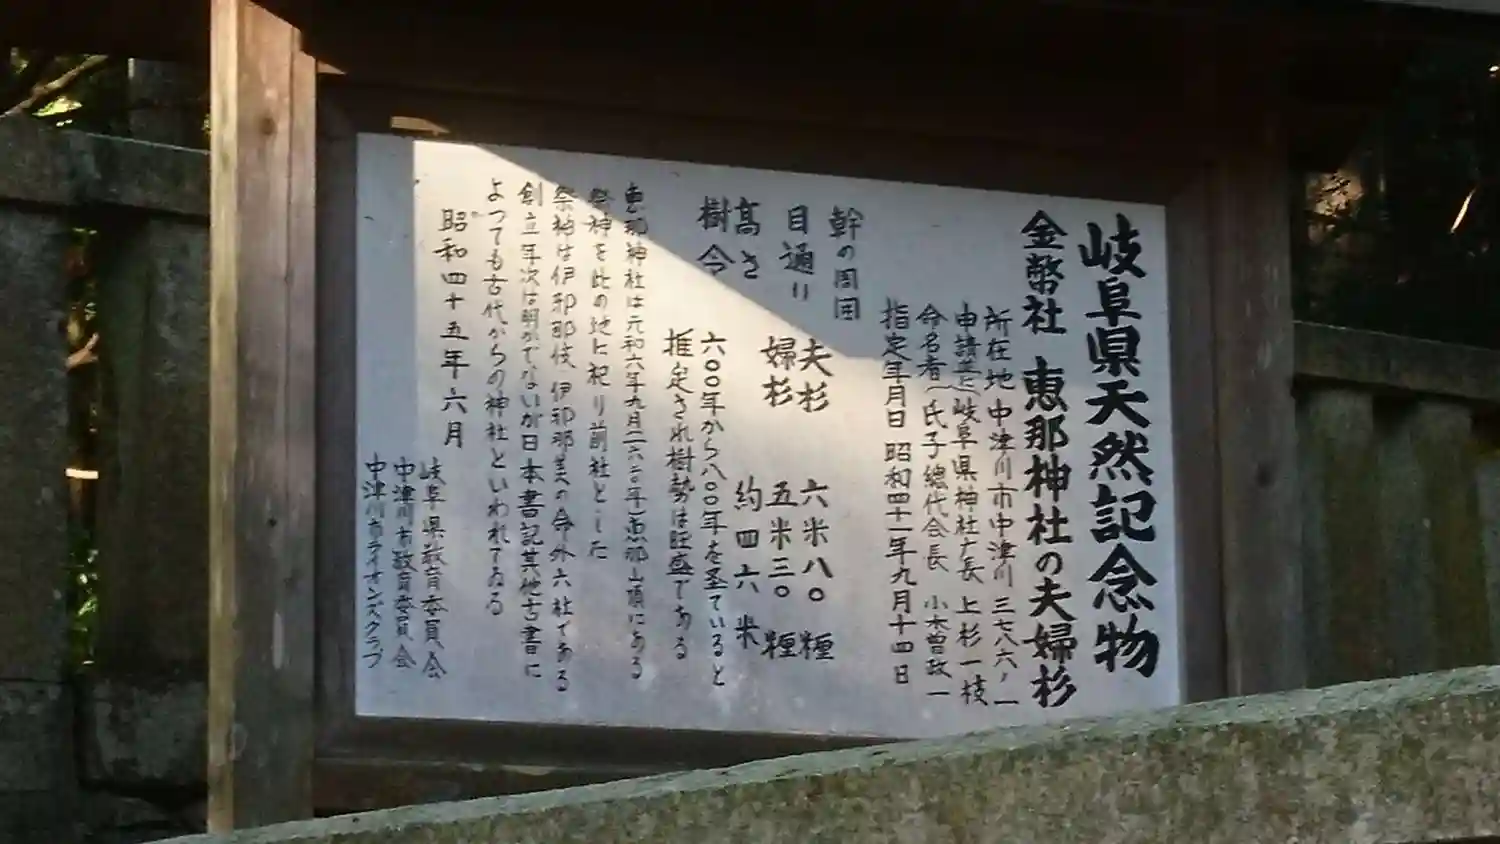 岐阜県天然記念物
金幣社 恵那神社の夫婦杉
所在地 中津川市中津川三七八六ノ一
申請並に 岐阜県神社庁長 上杉一枝
命名者 氏子總代会長 小木曽政一
指定年月日 昭和四十一年九月十四日
幹の周囲
目通り 夫杉 六米八〇糎
婦杉 五米三〇糎
高さ 約四六米
樹令 六〇〇年から八〇〇年を圣ていると
推定され樹勢は旺盛である
恵那神社は元和六年九月(一六二〇年)恵那山頂にある
祭神を此の地に祀り前社とした
祭神は伊邪那伎 伊邪那美の命外六社である
創立年次は明かでないが日本書記其他古書に
よつても古代からの神社といわれてゐる
昭和四十五年六月
岐阜県教育委員会
中津川市教育委員会
中津川市ライオンズクラブ